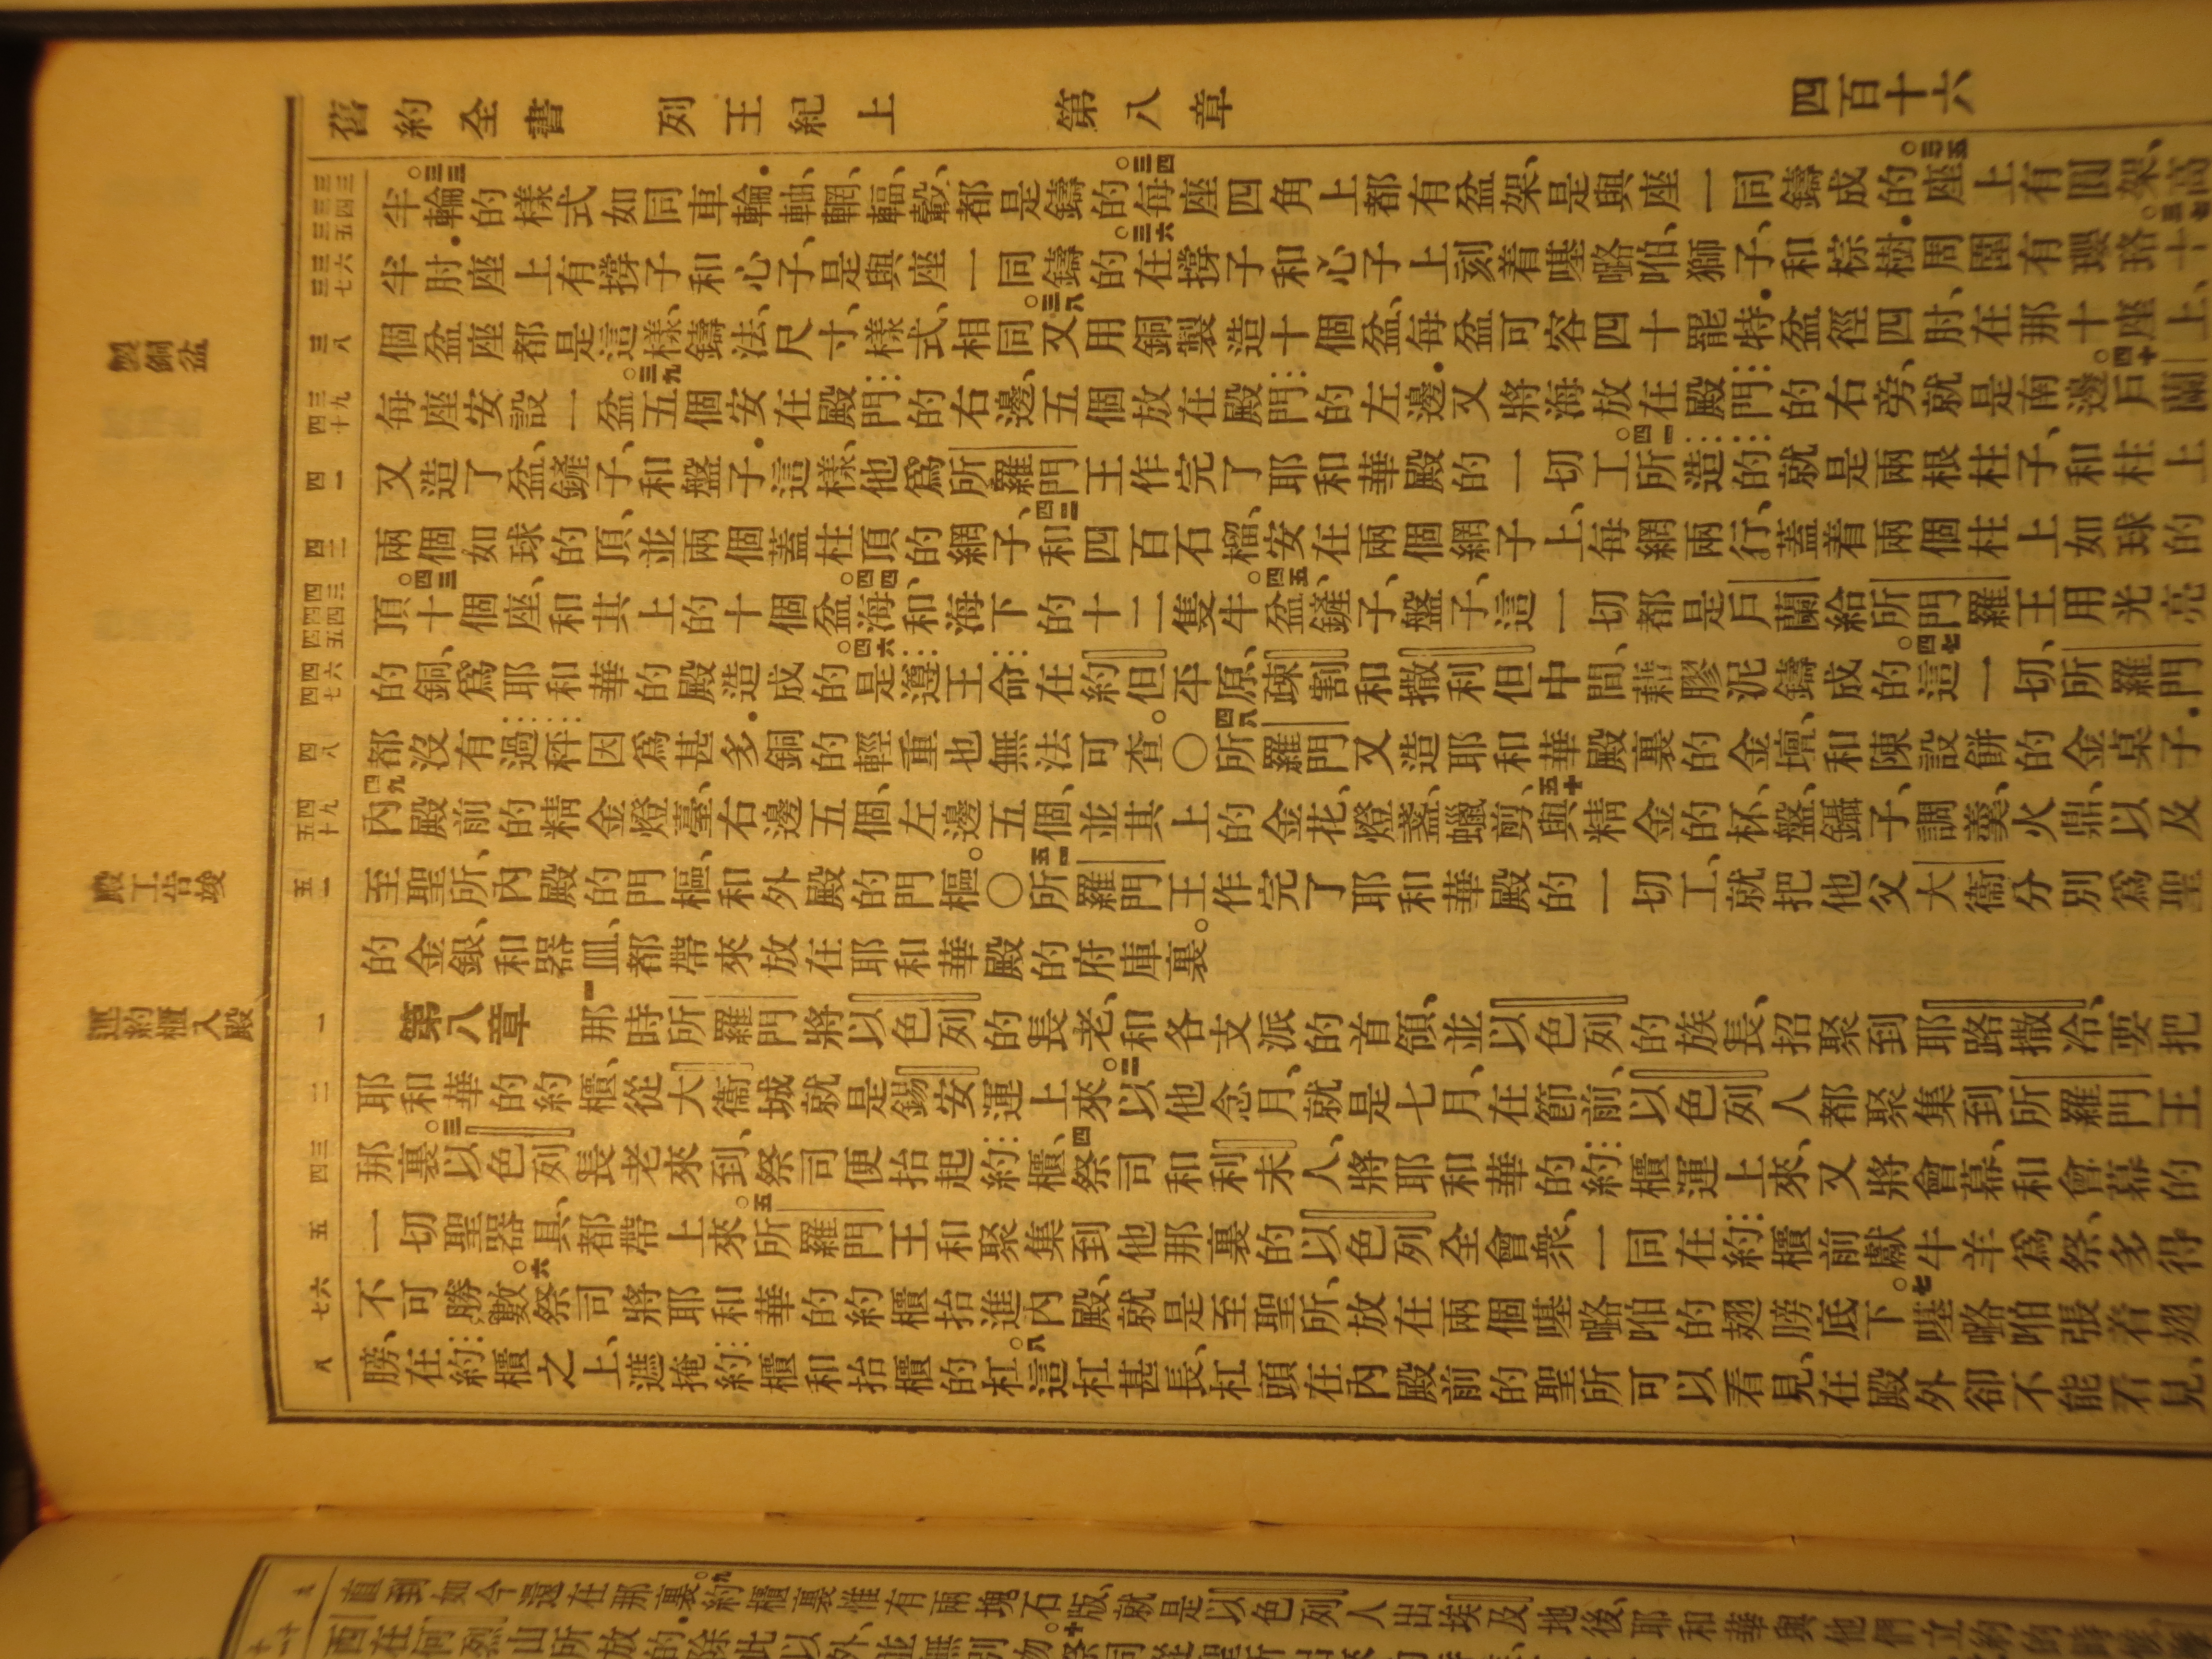 舊約全書 列王紀上 第八章 四百十六
半。三三輪的樣式如同車輪.軸、輞、輻、轂、都是鑄的。三四每座四角上都有盆架、是與座一同鑄成的。三五座上有圓架、高
半肘.座上有撐子和心子、是與座一同鑄的。三六在撐子和心子上刻着獅子、和棕樹.周圍有瓔珞。三七十
個盆座都是這樣、鑄法、尺寸、樣式、相同。三八又用銅製造十個盆、每盆可容四十罷特.盆徑四肘、在那十座上、
每座安設一盆。三九五個安在殿門的右邊、五個放在殿門的左邊.又將海放在殿門的右旁、就是南邊。四十戶蘭
又造了盆、鏟子、和盤子.這樣、他爲所羅門王作完了耶和華殿的一切工。四一所造的、就是兩根柱子、和柱上
兩個如球的頂、並兩個蓋柱頂的網子、四二和四百石榴、安在兩個網子上、每網兩行、蓋着兩個柱上如球的
頂。四三十個座、和其上的十個盆。四四海、和海下的十二隻牛。四五盆、鏟子、盤子、這一切都是戶蘭給所門羅王用光亮
的銅、爲耶和華的殿造成的。四六是遵王命在約但平原、疎割和撒利但中間、藉膠泥鑄成的。四七這一切、所羅門
都沒有過秤.因爲甚多.銅的輕重也無法可查。〇四八所羅門又造耶和華殿裏的金壇、和陳設餅的金桌子.
四九內殿前的精金燈臺、右邊五個、左邊五個、並其上的金花、燈盞、蠟剪、五十與精金的杯、盤、鑷子、調羹、火鼎、以及
至聖所、內殿的門樞、和外殿的門樞。〇五一所羅門王作完了耶和華殿的一切工、就把他父大衞分別爲聖
的金銀、和器皿、都帶來放在耶和華殿的府庫裏。
第八章 一那時所羅門將以色列的長老、和各支派的首領、並以色列的族長、招聚到耶路撒冷、要把
耶和華的約櫃、從大衞城就是錫安運上來。二以他念月、就是七月、在節前、以色列人都聚集到所羅門王
那裏。三以色列長老來到、祭司便抬起約櫃、四祭司和利未人、將耶和華的約櫃運上來、又將會幕、和會幕的
一切聖器具、都帶上來。五所羅門王和聚集到他那裏的以色列全會衆、一同在約櫃前獻牛羊爲祭、多得
不可勝數。六祭司將耶和華的約櫃抬進內殿、就是至聖所、放在兩個的翅膀底下。七張着翅
膀、在約櫃之上、遮掩約櫃和抬櫃的杠。八這杠甚長、杠頭在內殿前的聖所可以看見、在殿外卻不能看見、
製銅盆
殿工告竣
運約櫃入殿
直到如今還在那裏。九約櫃裏惟有兩塊石版、就是以色列人出埃及地後、耶和華與他們立約的時候、
西在何烈山所放的.除此以外、並無別物。十祭司從聖所出來